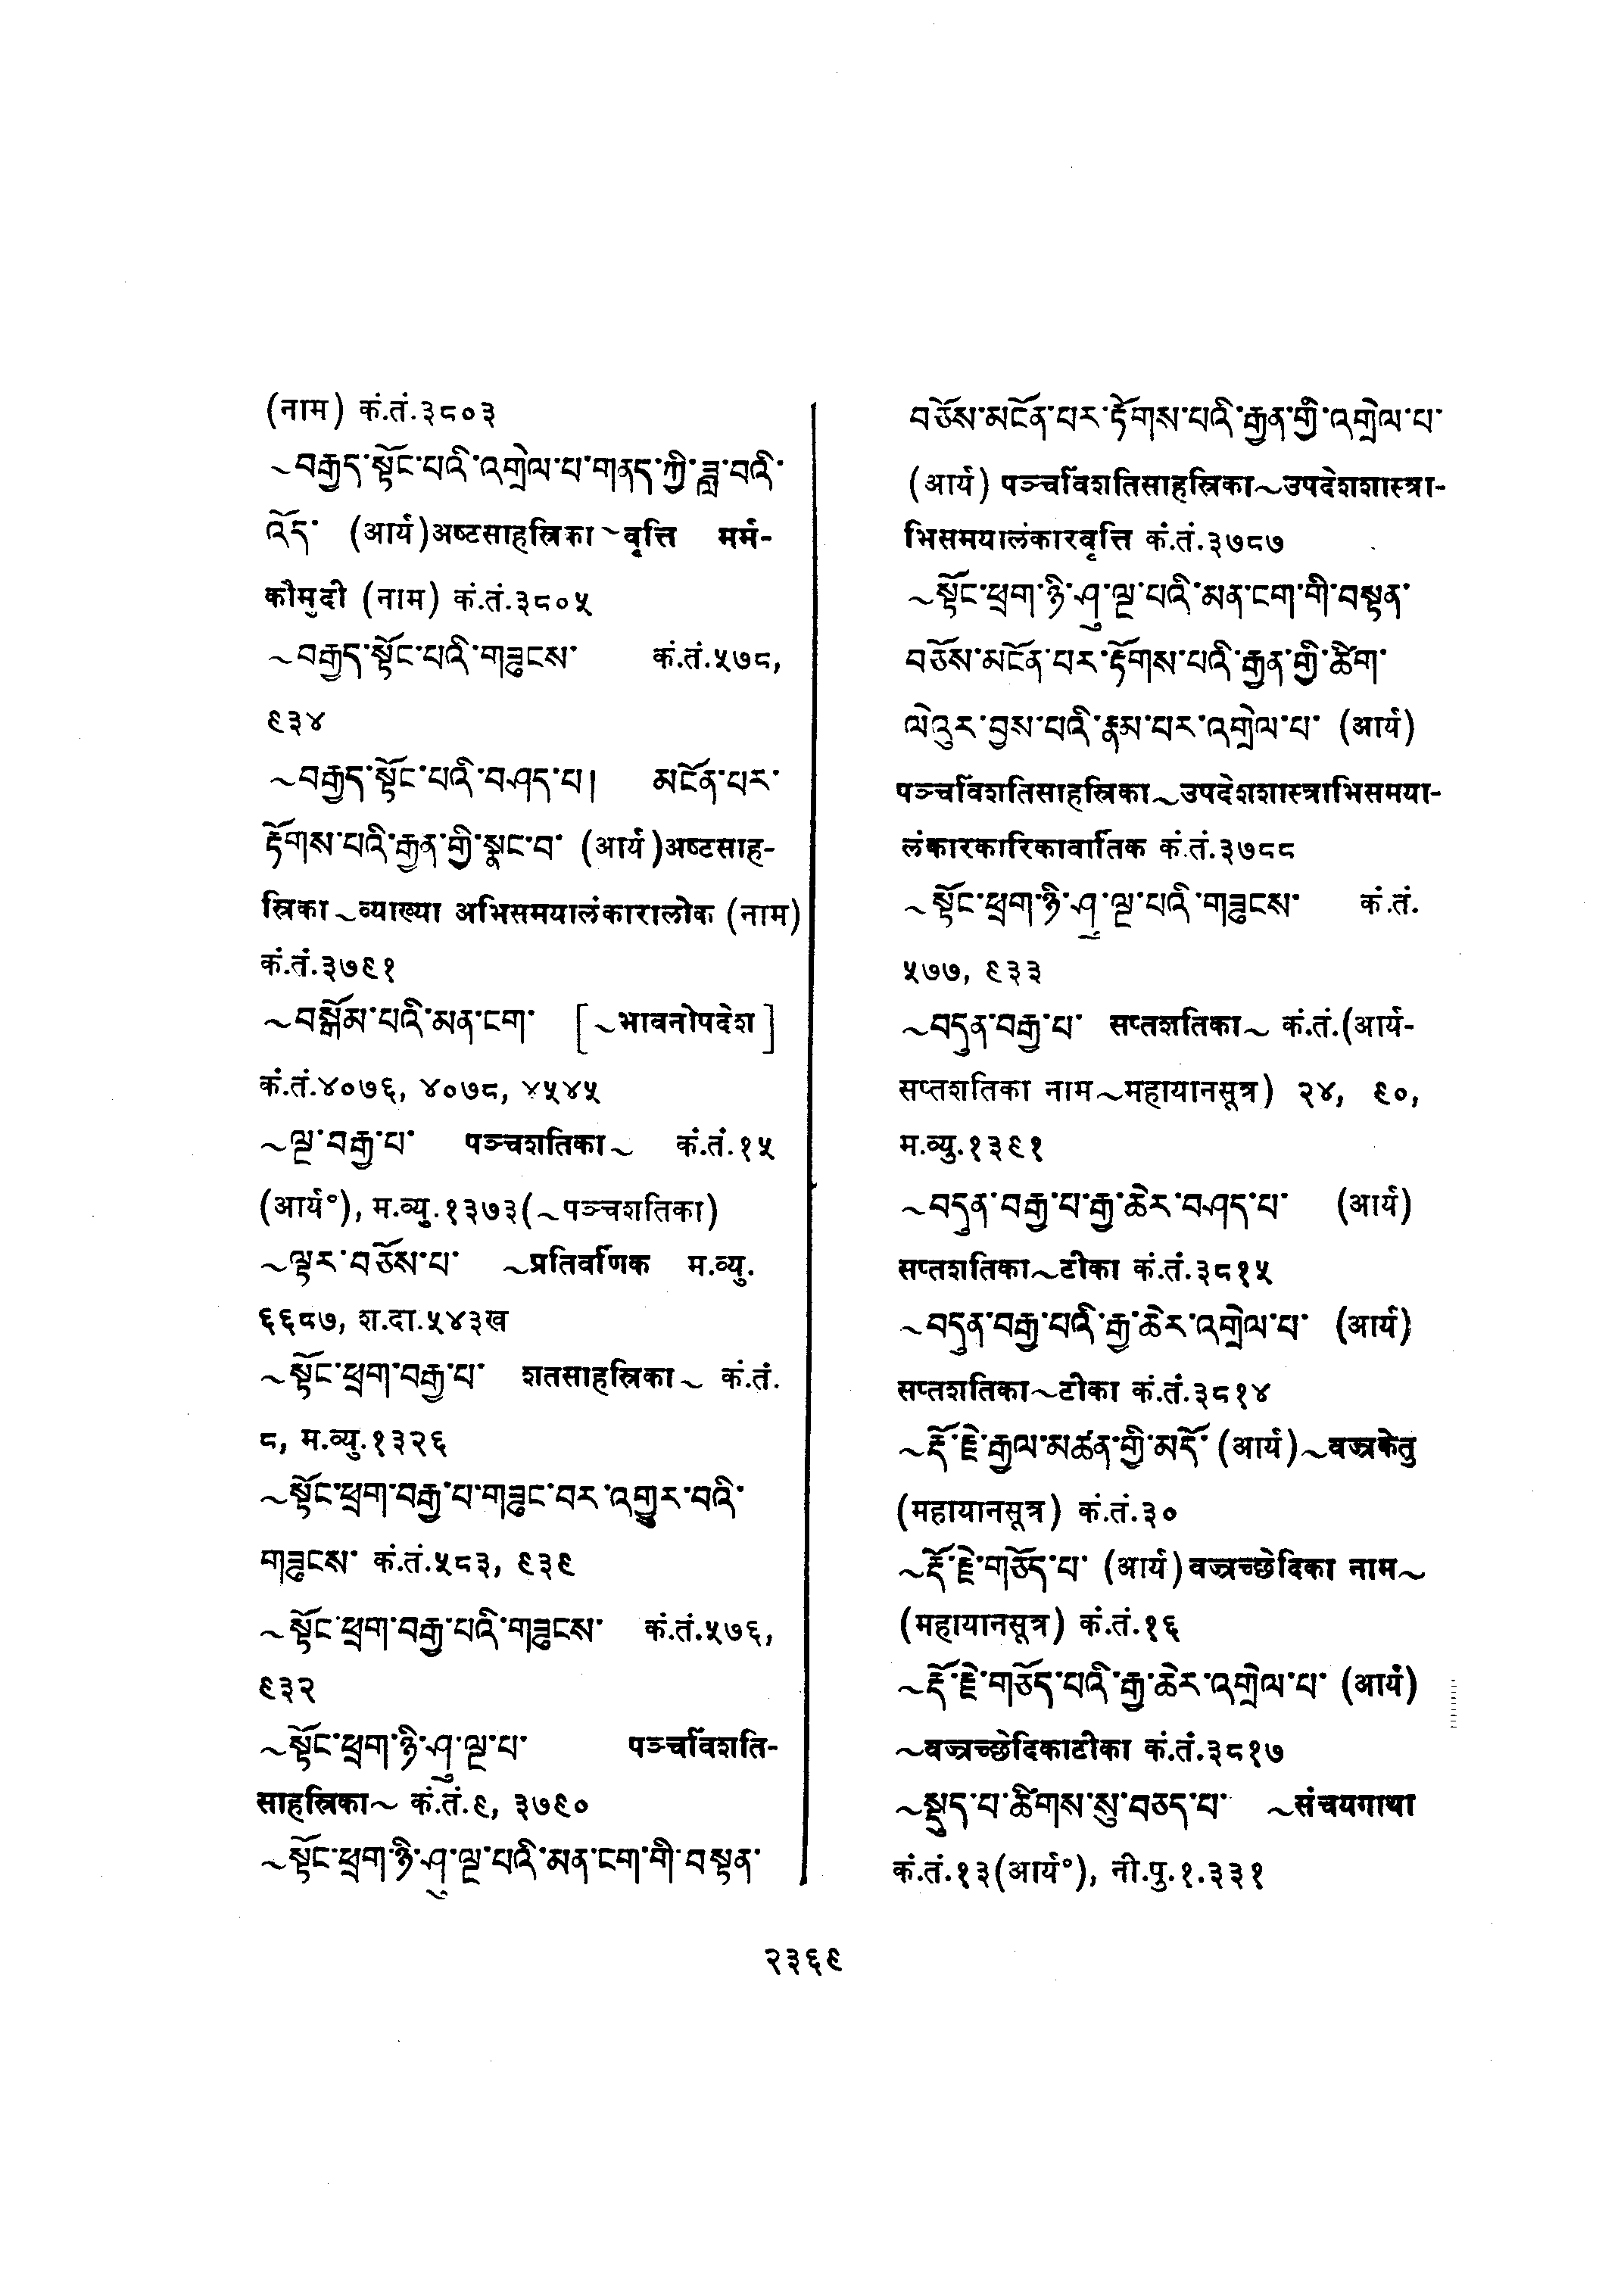 (नाम) कं.तं.३८०३
~བརྒྱད་སྟོང་པའི་འགྲེལ་པ་གནད་ཀྱི་ཟླ་བའི་
འོད་ (आर्य)अष्टसाहस्रिका~वृत्ति मर्म-
कौमुदी (नाम) कं.तं.३८०५
~བརྒྱད་སྟོང་པའི་གཟུངས་ कं.तं.५७८,
९३४
~བརྒྱད་སྟོང་པའི་བཤད་པ། མངོན་པར་
རྟོགས་པའི་རྒྱན་གྱི་སྣང་བ་ (आर्य)अष्टसाह-
स्रिका~व्याख्या अभिसमयालंकारालोक (नाम)
कं.तं.३७९१
~བསྒོམ་པའི་མན་ངག་ [~भावनोपदेश]
कं.तं.४०७६, ४०७८, ४५४५
~ལྔ་བརྒྱ་པ་ पञ्चशतिका~ कं.तं.१५
(आर्य॰), म.व्यु.१३७३(~पञ्चशतिका)
~ལྟར་བཅོས་པ་ ~प्रतिवर्णिक म.व्यु.
६६८७, श.दा.५४३ख
~སྟོང་ཕྲག་བརྒྱ་པ་ शतसाहस्रिका~ कं.तं.
८, म.व्यु.१३२६
~སྟོང་ཕྲག་བརྒྱ་པ་གཟུང་བར་འགྱུར་བའི་
གཟུངས་ कं.तं.५८३, ९३९
~སྟོང་ཕྲག་བརྒྱ་པའི་གཟུངས་ कं.तं.५७६,
९३२
~སྟོང་ཕྲག་ཉི་ཤུ་ལྔ་པ་ पञ्चविंशति-
साहस्रिका~ कं.तं.९, ३७९०
~སྟོང་ཕྲག་ཉི་ཤུ་ལྔ་པའི་མན་ངག་གི་བསྟན་
བཅོས་མངོན་པར་རྟོགས་པའི་རྒྱན་གྱི་འགྲེལ་པ་
(आर्य) पञ्चविंशतिसाहस्रिका~उपदेशशास्त्रा-
भिसमयालंकारवृत्ति कं.तं.३७८७
~སྟོང་ཕྲག་ཉི་ཤུ་ལྔ་པའི་མན་ངག་གི་བསྟན་
བཅོས་མངོན་པར་རྟོགས་པའི་རྒྱན་གྱི་ཚིག་
ལེའུར་བྱས་པའི་རྣམ་པར་འགྲེལ་པ་ (आर्य)
पञ्चविंशतिसाहस्रिका~उपदेशशास्त्राभिसमया-
लंकारकारिकावार्तिक कं.तं.३७८८
~སྟོང་ཕྲག་ཉི་ཤུ་ལྔ་པའི་གཟུངས་ कं.तं.
५७७, ९३३
~བདུན་བརྒྱ་པ་ सप्तशतिका~ कं.तं.(आर्य-
सप्तशतिका नाम~महायानसूत्र) २४, ९०,
म.व्यु.१३९१
~བདུན་བརྒྱ་པ་རྒྱ་ཆེར་བཤད་པ་ (आर्य)
सप्तशतिका~टीका कं.तं.३८१५
~བདུན་བརྒྱ་པའི་རྒྱ་ཆེར་འགྲེལ་པ་ (आर्य)
सप्तशतिका~टीका कं.तं.३८१४
~རྡོ་རྗེ་རྒྱལ་མཚན་གྱི་མདོ་ (आर्य)~वज्रकेतु
(महायानसूत्र) कं.तं.३०
~རྡོ་རྗེ་གཅོད་པ་ (आर्य)वज्रच्छेदिका नाम~
(महायानसूत्र) कं.तं.१६
~རྡོ་རྗེ་གཅོད་པའི་རྒྱ་ཆེར་འགྲེལ་པ་ (आर्य)
~वज्रच्छेदिकाटीका कं.तं.३८१७
~སྡུད་པ་ཚིགས་སུ་བཅད་པ་ ~संचयगाथा
कं.तं.१३(आर्य॰), नी.पु.१.३३१
२३६९